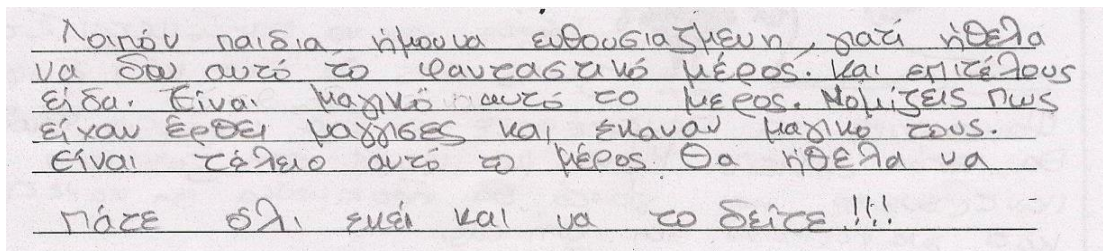 Λοιπόν παιδιά, ήμουνα ενθουσιαζμένη, γιατί ήθελα
να δω αυτό το φανταστικό μέρος. Και επιτέλους
είδα. Είναι μαγικό αυτό το μέρος. Νομίζεις πως
είχαν έρθει μάγισες και έκαναν μαγικό τους.
Είναι τέλειο αυτό το μέρος. Θα ήθελα να
πάτε όλι εκεί και να το δείτε!!!